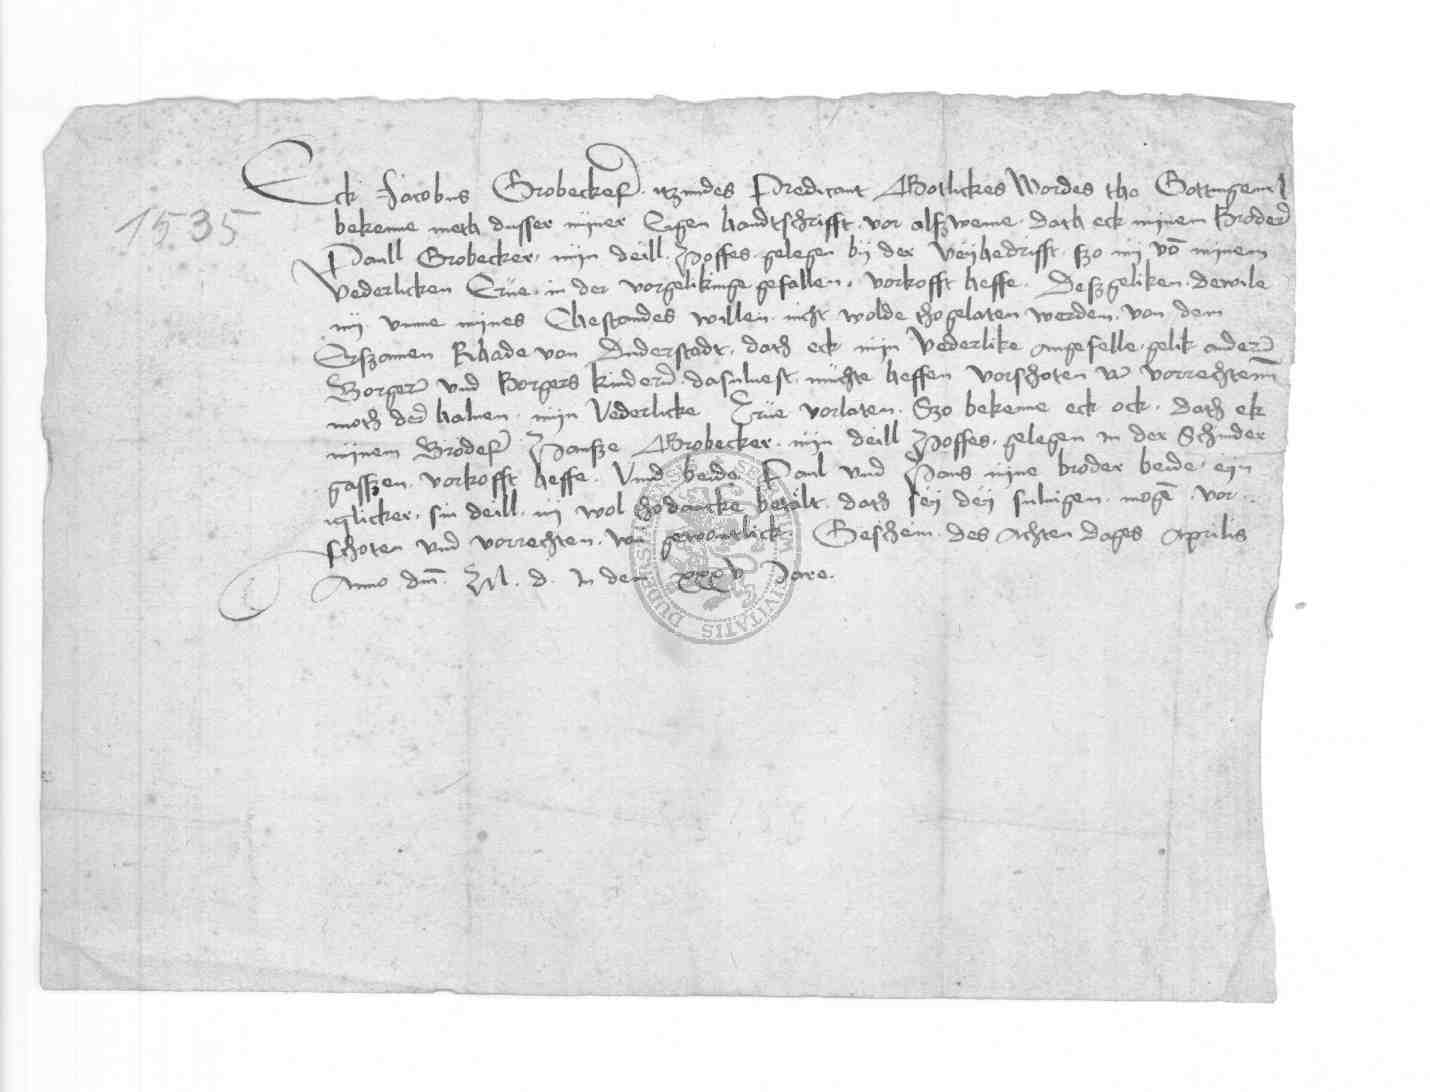 Eck Jacobus Grobecker. itzundes Predicant Gotlickes Wordes tho Gottingenn
1535
bekenne meth dusser mÿner Eigen handtschrifft. vor alszweme. dath eck mÿnem Broder
Paull Grobecker. mÿn deill. Hoffes. gelegen bÿ der Veÿhedrifft. szo mÿ võ minem
Vederlicken Erüe. in der vorgelikinge gefallen. vorkofft heffe. Deszgeliken. dewile
mÿ vmme mÿnes Ehestandes willen. nicht wolde thogelaten werden. von dem
Erszamen Rhade von Duderstadt. dath eck mÿn Vederlike angefelle. gelik ander
Borger vnd Borgers kinder. dasuluest. müchte heffen vorschoten vñ vorrechtenn
moth der haluen. mÿn Vederlicke Erüe vorlaten. Szo bekenne eck ock. dath ek
mÿnem Broder Hansze Grobecker. mÿn deill Hoffes. gelegen in der Schinder
gasszen. vorkofft heffe. Vnnd beide Paul vnd Hans mÿne broder beide. eÿn
iglicker. sin deill. mÿ wol thodancke betalt. dath seÿ deÿ suluigen. mogẽ. vor..
schoten vnd vorrechten. wu gewontlick. Geschein. des achten dages Aprilis
Anno dm̃. M. d. In dem xxxv Jare.
SIGILLUM CIVITATIS DUDERST